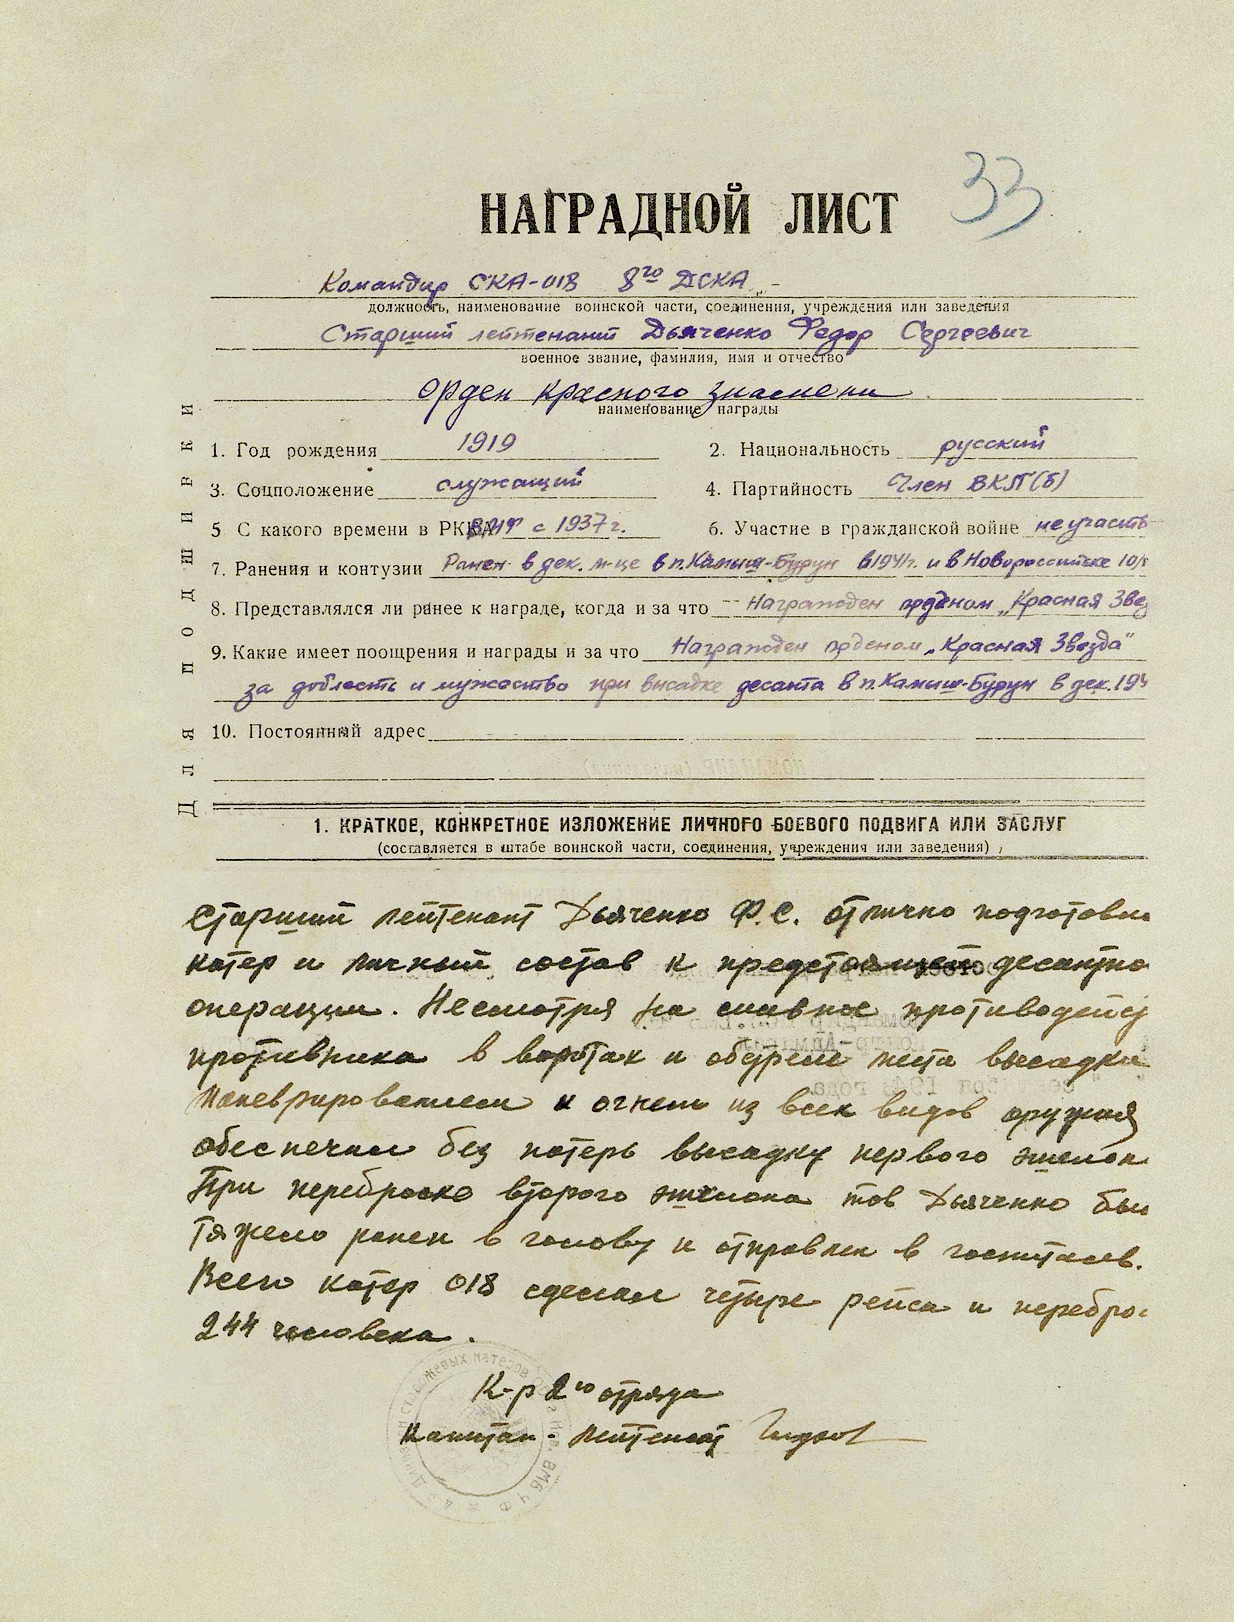 33
НАГРАДНОЙ ЛИСТ
Командир СКА-018 8го ДСКА
должность, наименование воинской части, соединения, учреждения или заведения
Старший лейтенант Дьяченко Федор Сергеевич
военное звание, фамилия, имя и отчество
орден красного знамени
наименование награды
Для подшивки
1. Год рождения 1919 2. Национальность русский
3. Соцположение служащий 4. Партийность Член ВКП(б)
5 С какого времени в РККА с 1937 г. 6. Участие в гражданской войне не участв
7. Ранения и контузии Ранен в дек. м-це в п. Камыш-Бурун в 1941 г. и в Новороссийске 10/
8. Представлялся ли ранее к награде, когда и за что Награжден орденом „Красная Звез
9. Какие имеет поощрения и награды и за что Награжден орденом „Красная Звезда"
за доблесть и мужество при высадке десанта в п. Камыш-Бурун в дек. 194
10. Постоянный адрес
1. КРАТКОЕ, КОНКРЕТНОЕ ИЗЛОЖЕНИЕ ЛИЧНОГО БОЕВОГО ПОДВИГА ИЛИ ЗАСЛУГ
(составляется в штабе воинской части, соединения, учреждения или заведения)
Старший лейтенант Дьяченко Ф. С. отлично подготовил
катер и личный состав к предстоящей десантно
операции. Несмотря на сильное противодейс
противника в воротах и обстреле места высадки
маневрированием и огнем из всех видов оружия
обеспечил без потерь высадку первого эшелон
При переброске второго эшелона тов Дьяченко был
тяжело ранен в голову и отправлен в госпиталь.
Всего катер 018 сделал четыре рейса и перебро
244 человека.
К-р 2го отряда
Капитан-лейтенант